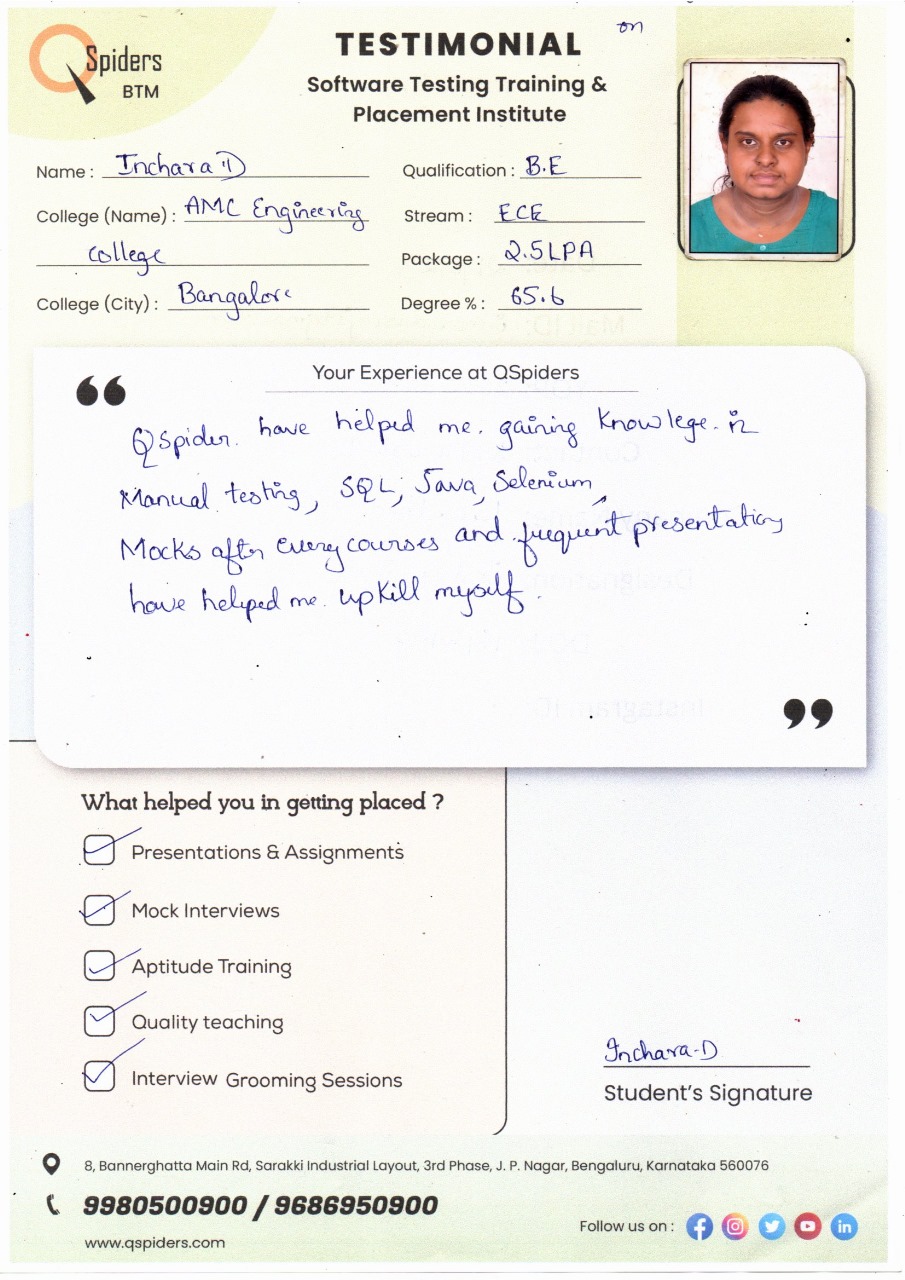 on
Q Spiders
BTM
TESTIMONIAL
Software Testing Training &
Placement Institute
Name : Inchara D
Qualification : B.E
College (Name) : AMC Engineering
Stream : ECE
college
Package : 2.5LPA
College (City) : Bangalore
Degree % : 65.6
Your Experience at QSpiders
“
QSpider. have helped me. gaining knowlege. in
Manual testing, SQL, Java, Selenium,
Mocks after every courses and frequent presentation
have helped me. upkill myself.
”
What helped you in getting placed ?
Presentations & Assignments
Mock Interviews
Aptitude Training
Quality teaching
Interview Grooming Sessions
Inchara-D
Student's Signature
8, Bannerghatta Main Rd, Sarakki Industrial Layout, 3rd Phase, J. P. Nagar, Bengaluru, Karnataka 560076
9980500900 / 9686950900
Follow us on :
www.qspiders.com